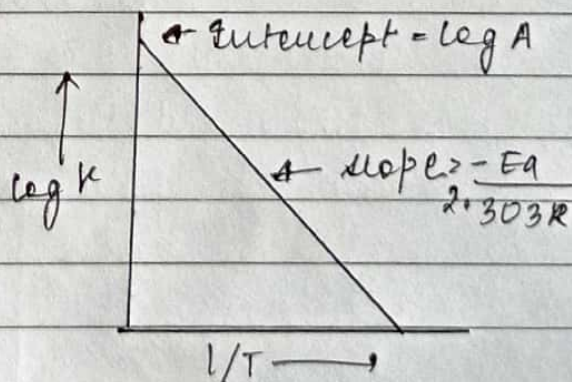 Intercept = log A
log k
slope = -Ea
2.303R
1/T